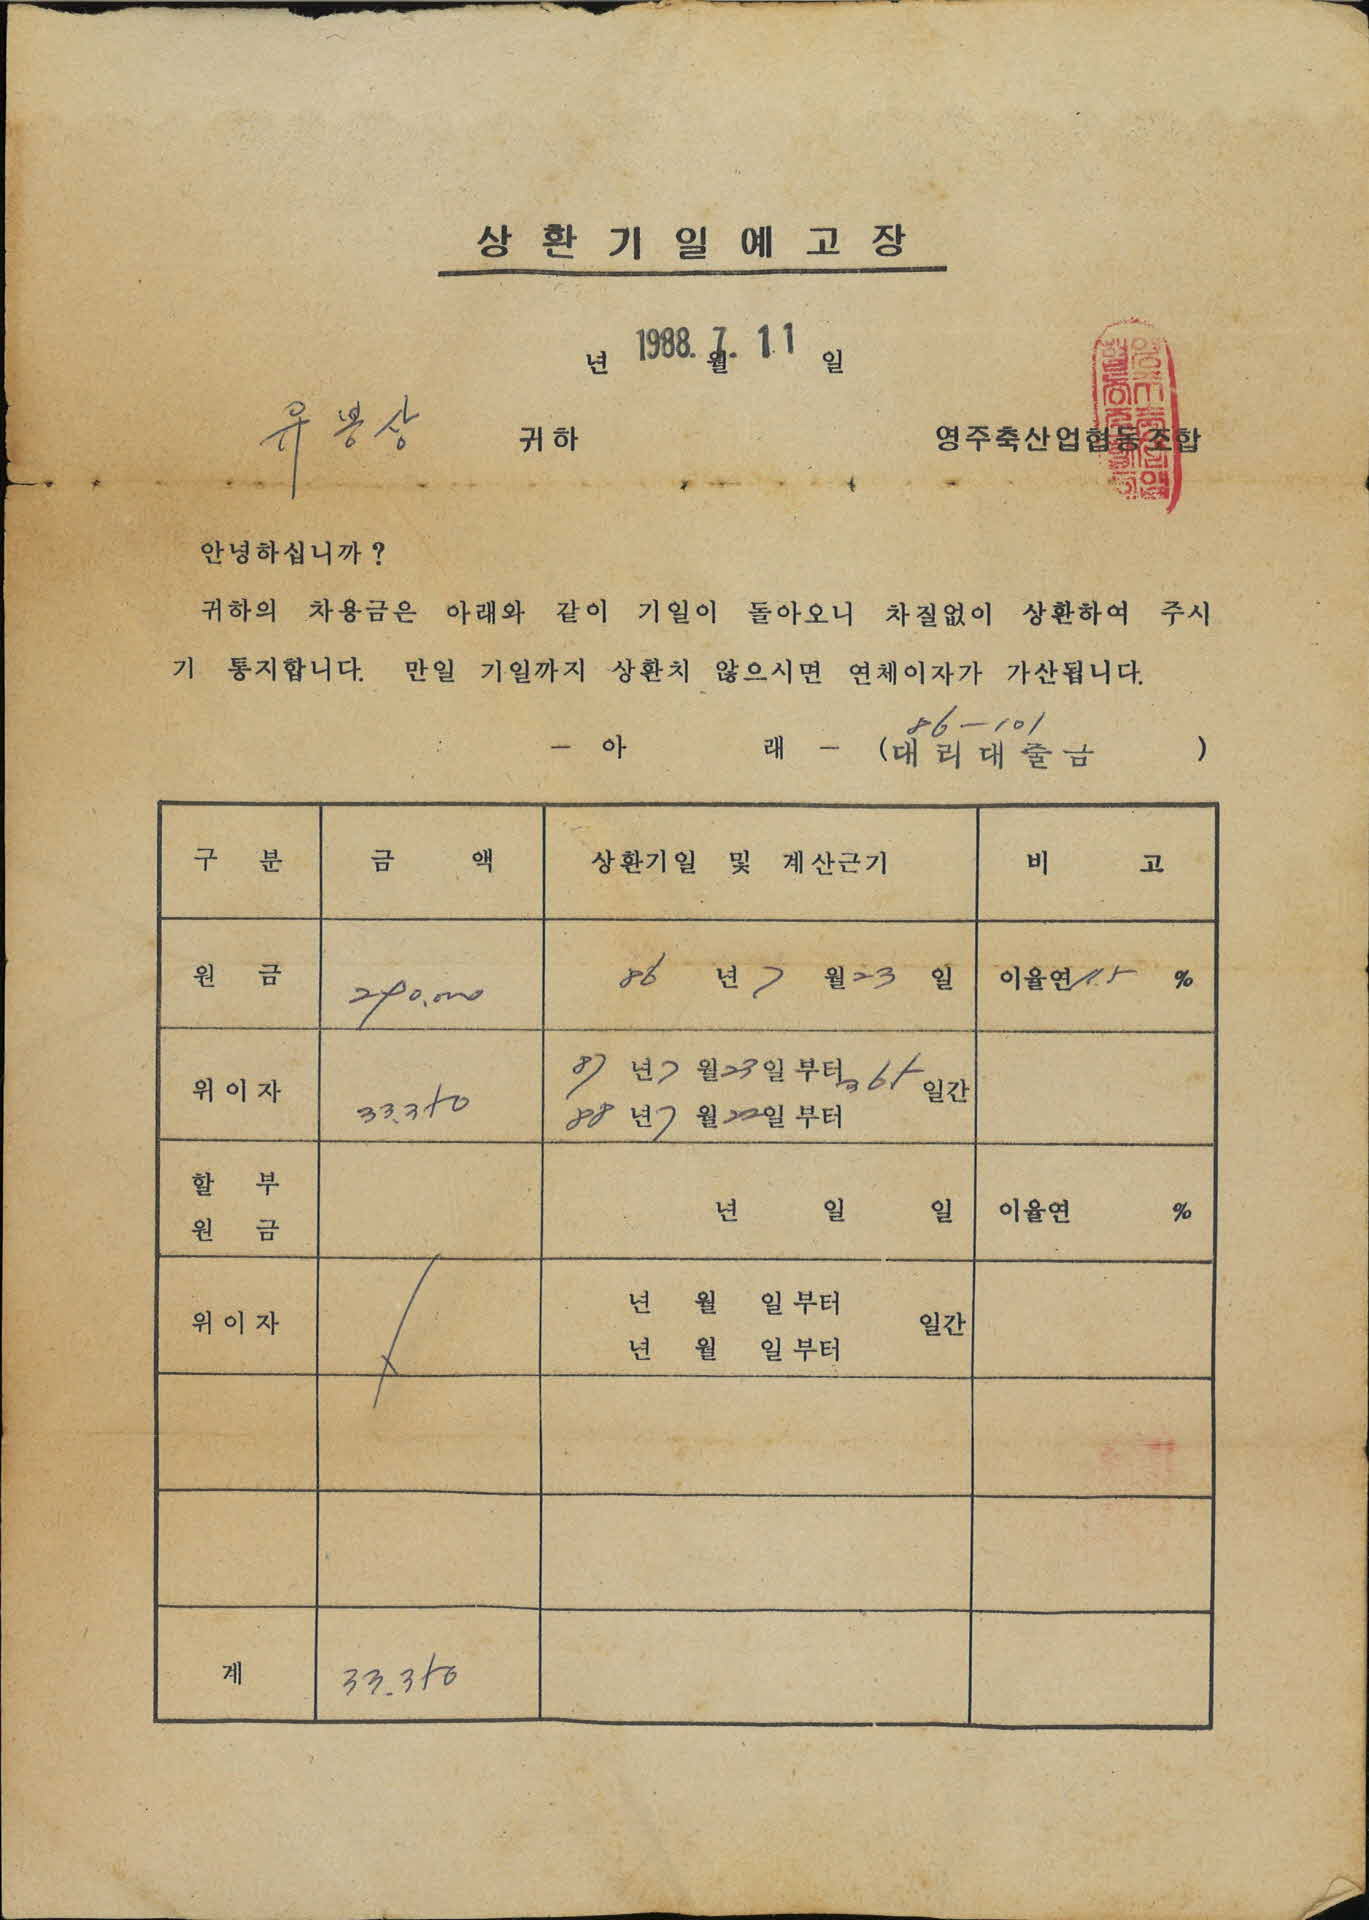 상환기일예고장
1988. 7. 11
년 월 일
유봉상 귀하 영주축산업협동조합
안녕하십니까?
귀하의 차용금은 아래와 같이 기일이 돌아오니 차질없이 상환하여 주시
기 통지합니다. 만일 기일까지 상환치 않으시면 연체이자가 가산됩니다.
86-101
- 아 래 - (대리대출금 )
구 분 금 액 상환기일 및 계산근기 비 고
원 금 290,000 86 년 7 월 23 일 이율연 11.5 %
위이자 33,350 87 년 7 월 23 일 부터 365 일간
88 년 7 월 22 일 부터
할 부
원 금 년 일 일 이율연 %
위이자 년 월 일 부터 일간
년 월 일 부터
계 33,350